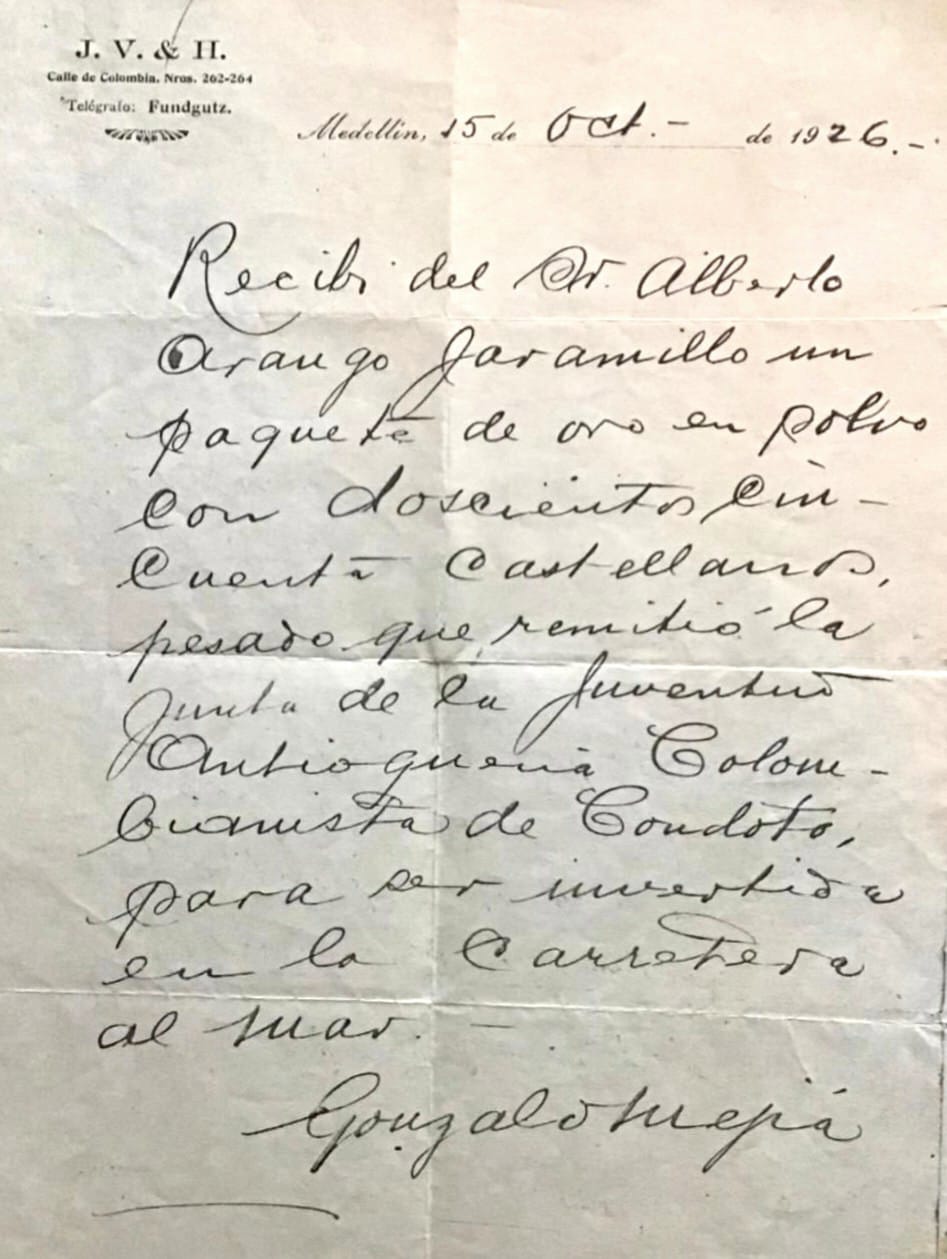 J. V. & H.
Calle de Colombia. Nros. 262-264
Telégrafo: Fundgutz.
Medellín, 15 de Oct. - de 1926. -
Recibi del Sr. Alberto
Arango Jaramillo un
paquete de oro en polvo
con doscientos cin-
cuenta castellanos,
pesado que remitió la
Junta de la Juventud
Antioqueña Colom-
bianista de Condoto,
para ser invertida
en la Carretera
al mar. -
Gonzalo Mejía